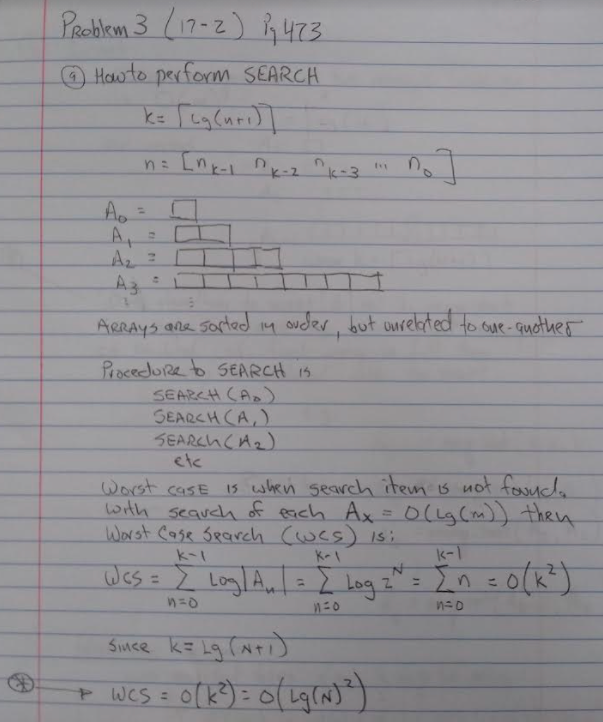 Problem 3 (17-2) Pg 473
(a) How to perform SEARCH
k = ⌈Lg(n+1)⌉
n = [n_{k-1} n_{k-2} n_{k-3} ... n_0]
A_0 =
A_1 =
A_2 =
A_3 =
ARRAYS are sorted in order, but unrelated to one-another
Procedure to SEARCH is
SEARCH(A_0)
SEARCH(A_1)
SEARCH(A_2)
etc
Worst case is when search item is not found.
With search of each A_x = O(Lg(m)) then
Worst Case Search (WCS) is:
WCS = ∑_{n=0}^{k-1} Log|A_n| = ∑_{n=0}^{k-1} Log 2^N = ∑_{n=0}^{k-1} n = O(k^2)
Since k = Lg(N+1)
* → WCS = O(k^2) = O(Lg(N)^2)